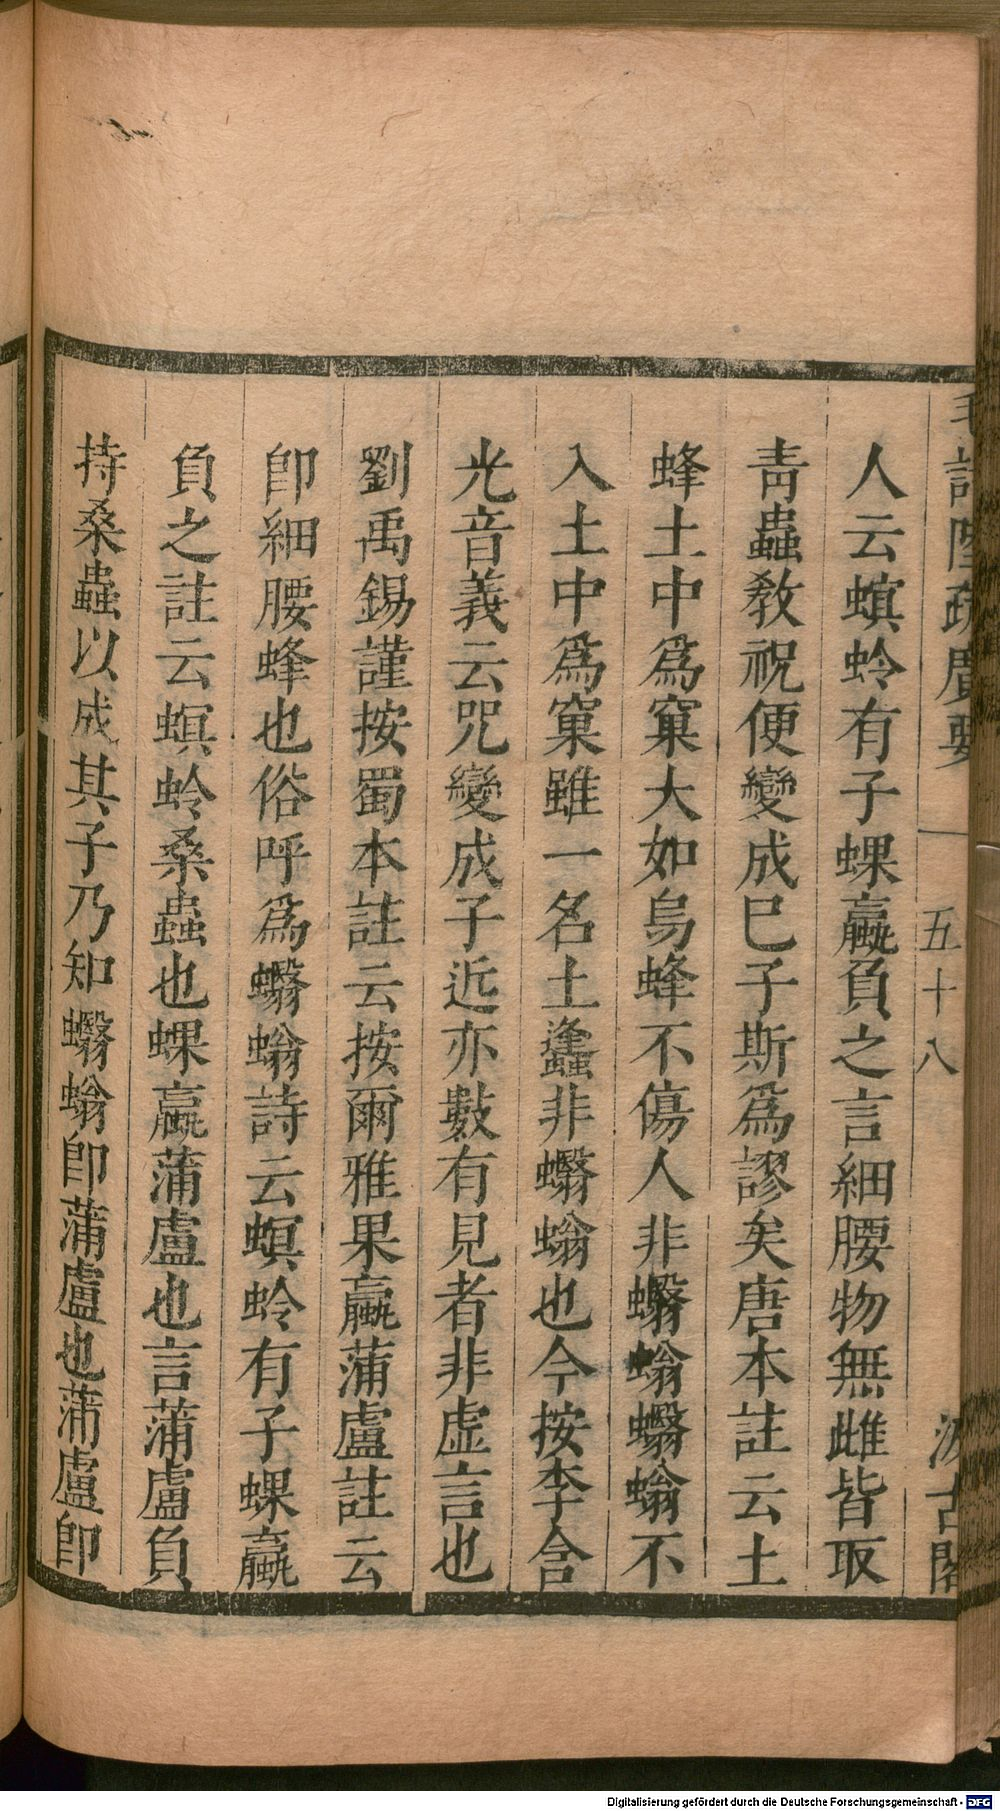 毛詩陸疏廣要
五十八
汲古閣
人云螟蛉有子蜾蠃負之言細腰物無雌皆取
青蟲教祝便變成已子斯為謬矣唐本註云土
蜂土中為窠大如烏蜂不傷人非蠮螉蠮螉不
入土中為窠雖一名土蠭非蠮螉也今按李含
光音義云咒變成子近亦數有見者非虛言也
劉禹錫謹按蜀本註云按爾雅果蠃蒲盧註云
卽細腰蜂也俗呼為蠮螉詩云螟蛉有子蜾蠃
負之註云螟蛉桑蟲也蜾蠃蒲盧也言蒲盧負
持桑蟲以成其子乃知蠮螉卽蒲盧也蒲盧卽
Digitalisierung gefördert durch die Deutsche Forschungsgemeinschaft - DFG